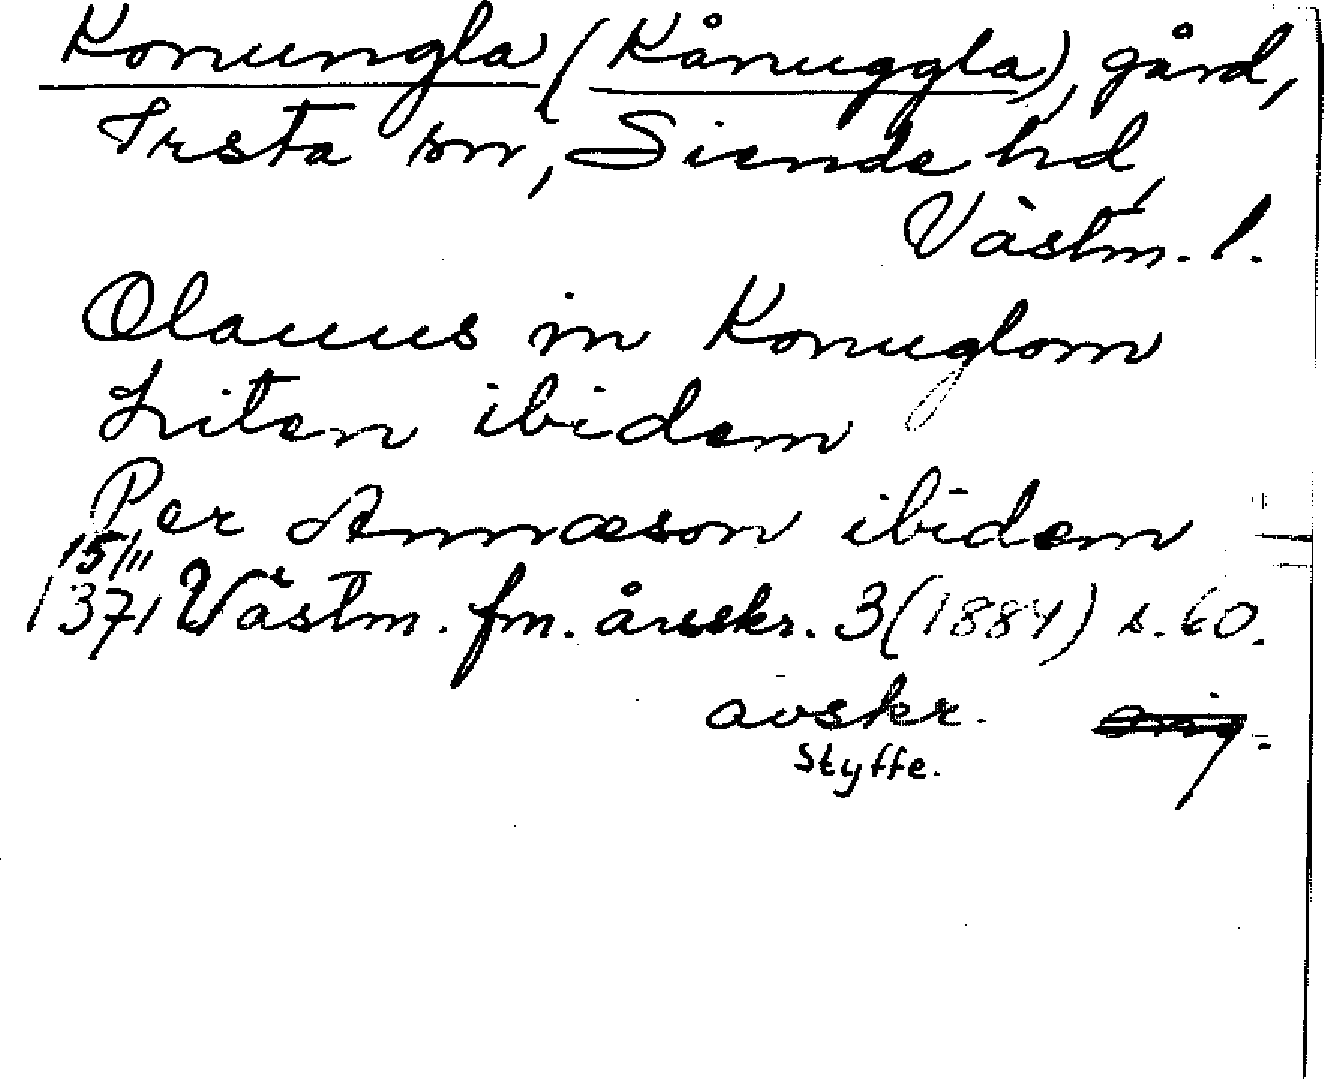 Konungla (Kånuggla), gård,
Irsta sn, Siende hd,
Västm. l.
Olauus in Konuglom
Liten ibidem
Per Annæson ibidem
15/11
1371 Västm. fm. årsskr. 3 (1884) s. 60.
avskr. orig.
Styffe.